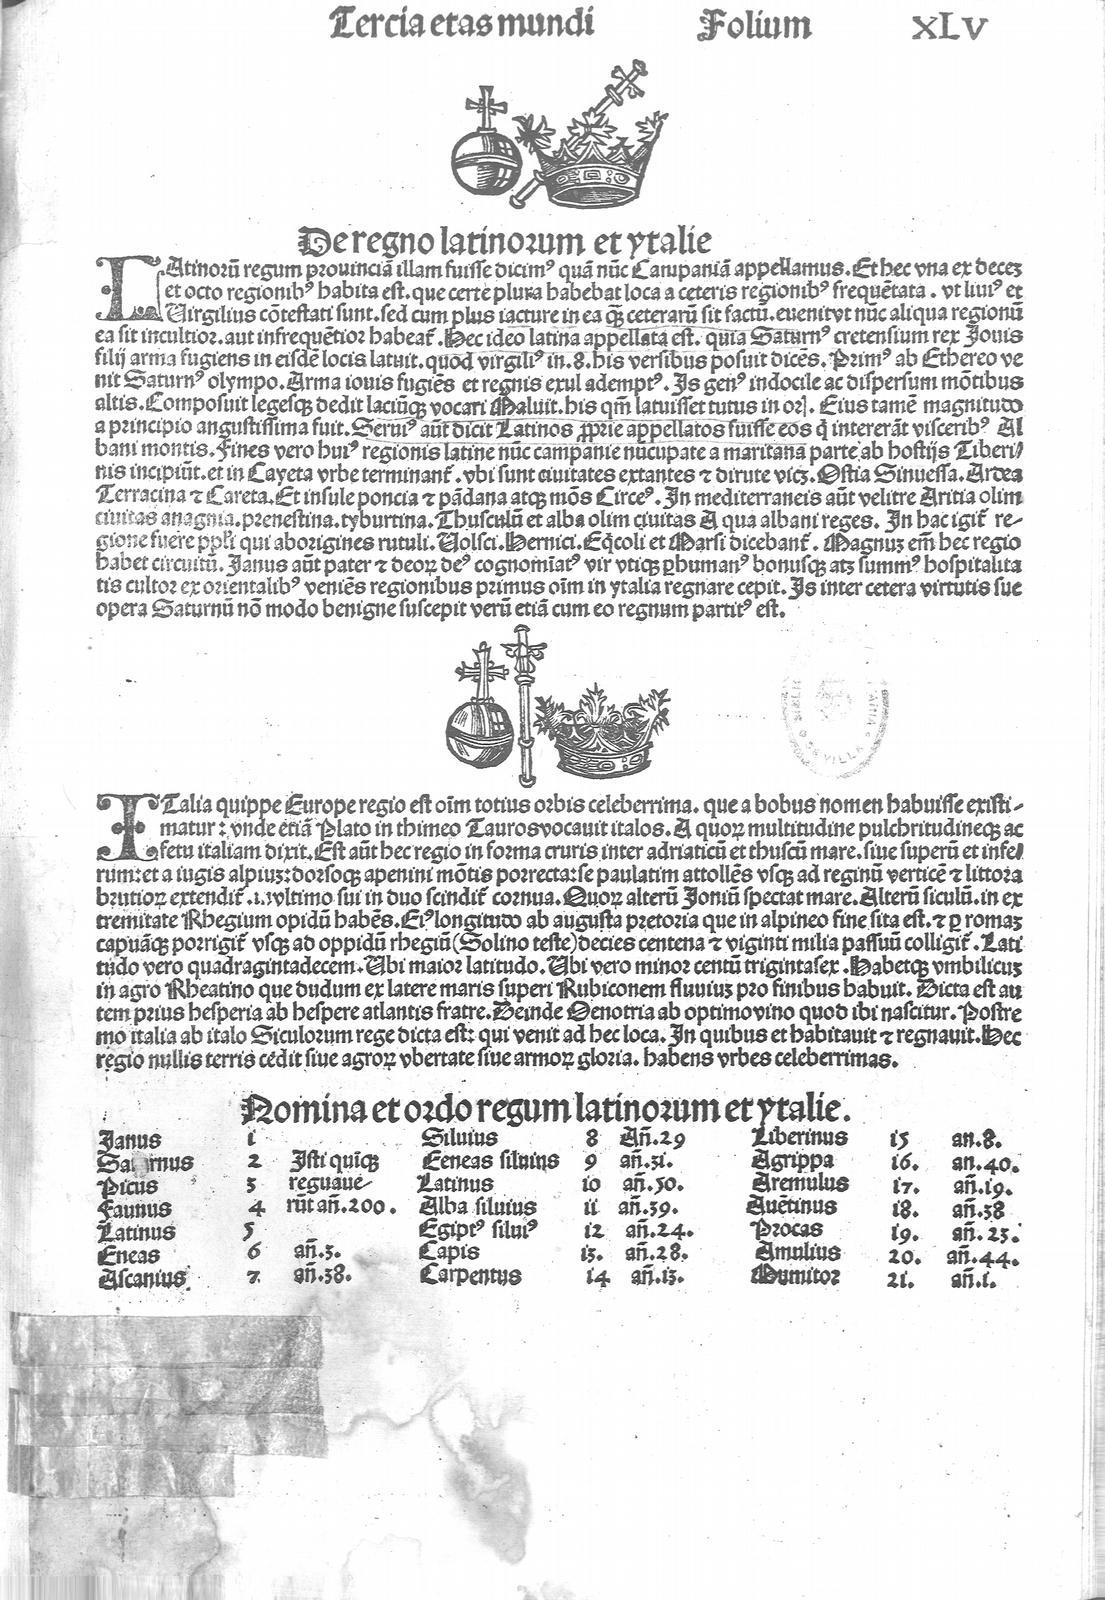 Tercia etas mundi Folium XLV
De regno latinorum et ytalie
LAtinorū regum prouinciā illam fuisse dicimꝰ quā nūc Campaniā appellamus. Et hec vna ex decez
et octo regionibꝰ habita est. que certe plura habebat loca a ceteris regionibꝰ frequētata. vt liuiꝰ et
Virgilius cōtestati sunt. sed cum plus iacture in ea qꝫ ceterarū sit factū. euenit vt nūc aliqua regionū
ea sit incultior. aut infrequētior habeat᷑. Hec ideo latina appellata est. quia Saturnꝰ cretensium rex Jouis
filij arma fugiens in eisdē locis latuit. quod virgiliꝰ in .8. his versibus posuit dicēs. Primꝰ ab Ethereo ve
nit Saturnꝰ olympo. Arma iouis fugiēs et regnis exul ademptꝰ. Js genꝰ indocile ac dispersum mōtibus
altis. Composuit legesqꝫ dedit laciūqꝫ vocari Maluit. his qm̄ latuisset tutus in orꝭ. Eius tamē magnitudo
a principio angustissima fuit. Seruiꝰ aūt dicit Latinos ꝓprie appellatos fuisse eos q̄ intererāt visceribꝰ Al
bani montis. Fines vero huiꝰ regionis latine nūc campanie nūcupate a maritana parte ab hostijs Tiberi
nis incipiūt. et in Cayeta vrbe terminant᷑. vbi sunt ciuitates extantes ⁊ dirute vicꝫ. Ostia Sinuessa. Ardea
Terracina ⁊ Careta. Et insule poncia ⁊ pādana atqꝫ mōs Circeꝰ. Jn mediterraneis aūt velitre Aritia olim
ciuitas anagnia. prenestina. tyburtina. Thusculū et alba olim ciuitas A qua albani reges. Jn hac igit᷑ re-
gione fuere ppl̄i qui aborigines rutuli. Volsci. Hernici. Eq̄coli et Marsi dicebant᷑. Magnuz em̄ hec regio
habet circuitū. Janus aūt pater ⁊ deoꝝ deꝰ cognomīatꝰ vir vtiqꝫ ꝑhumanꝰ bonusqꝫ atqꝫ summꝰ hospitalita
tis cultor ex orientalibꝰ veniēs regionibus primus oīm in ytalia regnare cepit. Js inter cetera virtutis sue
opera Saturnū nō modo benigne suscepit verū etiā cum eo regnum partitꝰ est.
ITalia quippe Europe regio est oīm totius orbis celeberrima. que a bobus nomen habuisse existi-
matur: vnde etiā Plato in thimeo Tauros vocauit italos. A quoꝝ multitudine pulchritudineqꝫ ac
fetu italiam dixit. Est aūt hec regio in forma cruris inter adriaticū et thuscū mare. siue superū et infe
rum: et a iugis alpiuz: dorsoqꝫ apenini mōtis porrecta: se paulatim attollēs vsqꝫ ad reginū verticē ⁊ littora
brutioꝝ extendit᷑. vltimo sui in duo scindit᷑ cornua. Quoꝝ alterū Joniū spectat mare. Alterū siculū. in ex
tremitate Rhegium opidū habēs. Eiꝰ longitudo ab augusta pretoria que in alpineo fine sita est. ⁊ ꝑ romaz
capuāqꝫ porrigit᷑ vsqꝫ ad oppidū rhegiū (Solino teste) decies centena ⁊ viginti milia passuū colligit᷑. Lati
tudo vero quadragintadecem. Vbi maior latitudo. Vbi vero minor centū trigintasex. Habetqꝫ vmbilicuz
in agro Rheatino que dudum ex latere maris superi Rubiconem fluuiuz pro finibus habuit. Dicta est au
tem prius hesperia ab hespere atlantis fratre. Deinde Oenotria ab optimo vino quod ibi nascitur. Postre
mo italia ab italo Siculorum rege dicta est: qui venit ad hec loca. Jn quibus et habitauit ⁊ regnauit. Hec
regio nullis terris cedit siue agroꝝ vbertate siue armoꝝ gloria. habens vrbes celeberrimas.
Nomina et ordo regum latinorum et ytalie.
Janus 1 Siluius 8 Añ.29 Liberinus 15 an.8.
Saturnus 2 Jsti quīqꝫ Eeneas siluius 9 añ.31. Agrippa 16. an.40.
Picus 3 regnaue- Latinus 10 añ.50. Aremulus 17. añ.19.
Faunus 4 rūt añ.200. Alba siluius 11 añ.39. Auētinus 18. añ.38
Latinus 5 Egiptꝰ siluiꝰ 12 añ.24. Procas 19. añ.23.
Eneas 6 añ.3. Capis 13. añ.28. Amulius 20. añ.44.
Ascanius 7. añ.38. Carpentus 14 añ.13. Numitor 21. añ.1.
SEVILLA